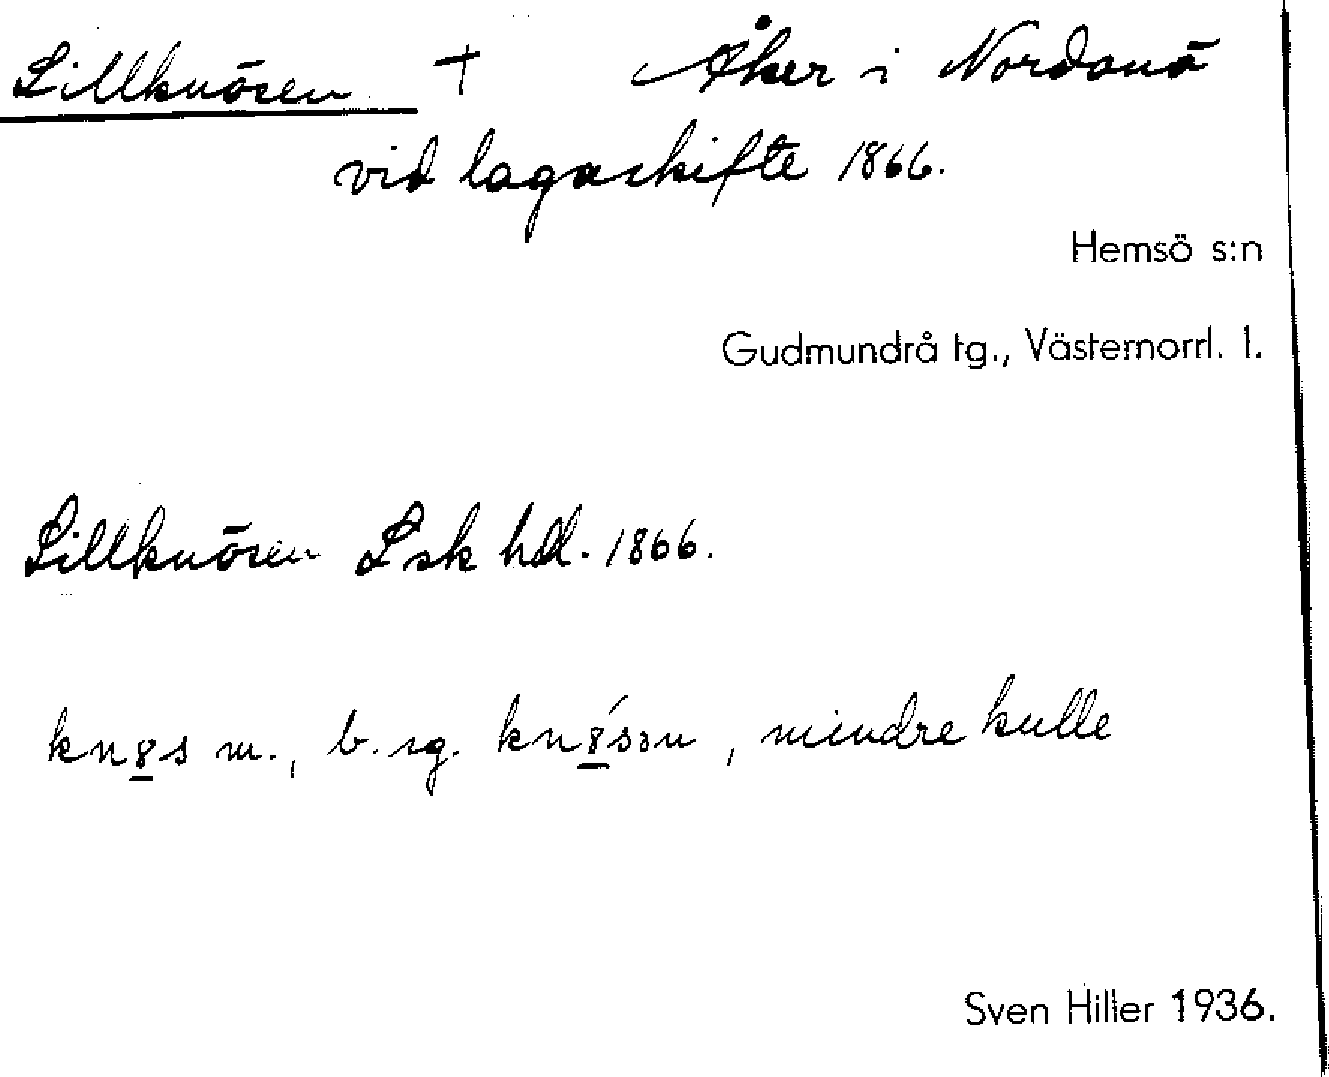 Lillknösen † Åker i Nordanö
vid lagaskifte 1866.
Hemsö s:n
Gudmundrå tg., Västernorrl. l.
Lillknösen Lsk hdl. 1866.
kn8s m., b. sg. kn8́sən, mindre kulle
Sven Hiller 1936.